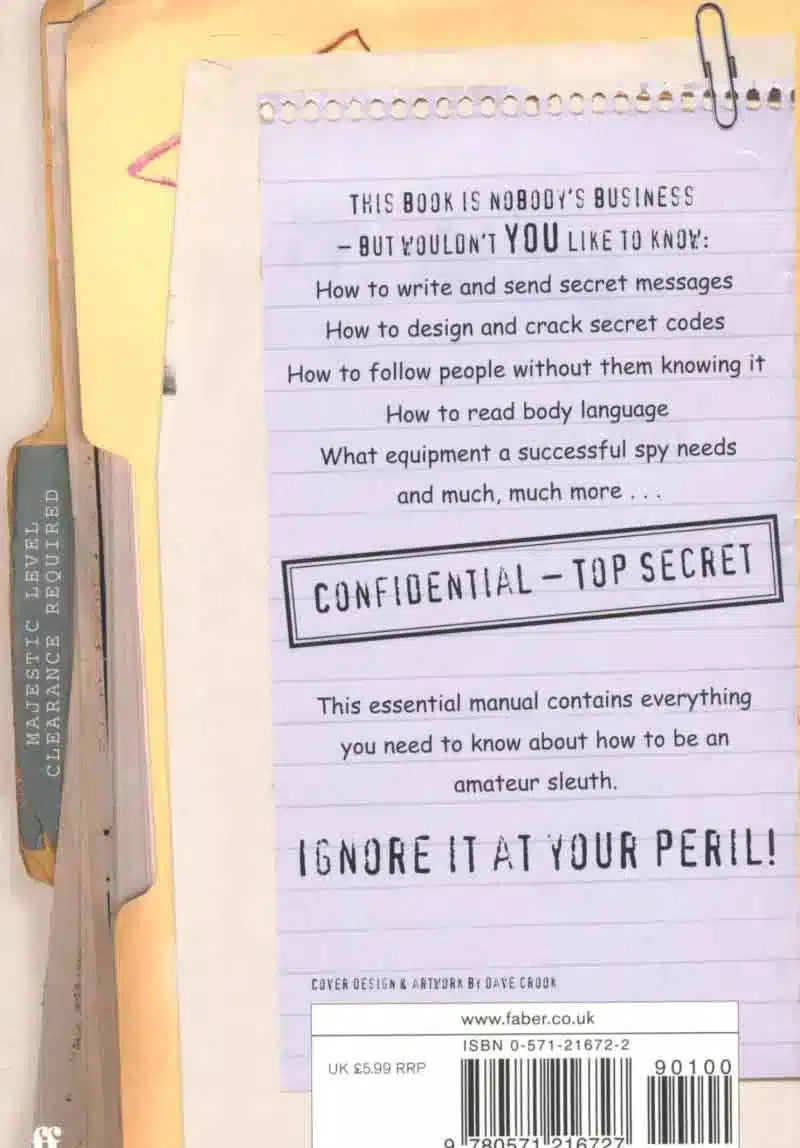 THIS BOOK IS NOBODY'S BUSINESS
– BUT WOULDN'T YOU LIKE TO KNOW:
How to write and send secret messages
How to design and crack secret codes
How to follow people without them knowing it
How to read body language
What equipment a successful spy needs
and much, much more . . .
CONFIDENTIAL – TOP SECRET
This essential manual contains everything
you need to know about how to be an
amateur sleuth.
IGNORE IT AT YOUR PERIL!
COVER DESIGN & ARTWORK BY DAVE CROOK
www.faber.co.uk
ISBN 0-571-21672-2
UK £5.99 RRP
90100
9 780571 216727
MAJESTIC LEVEL
CLEARANCE REQUIRED
ff